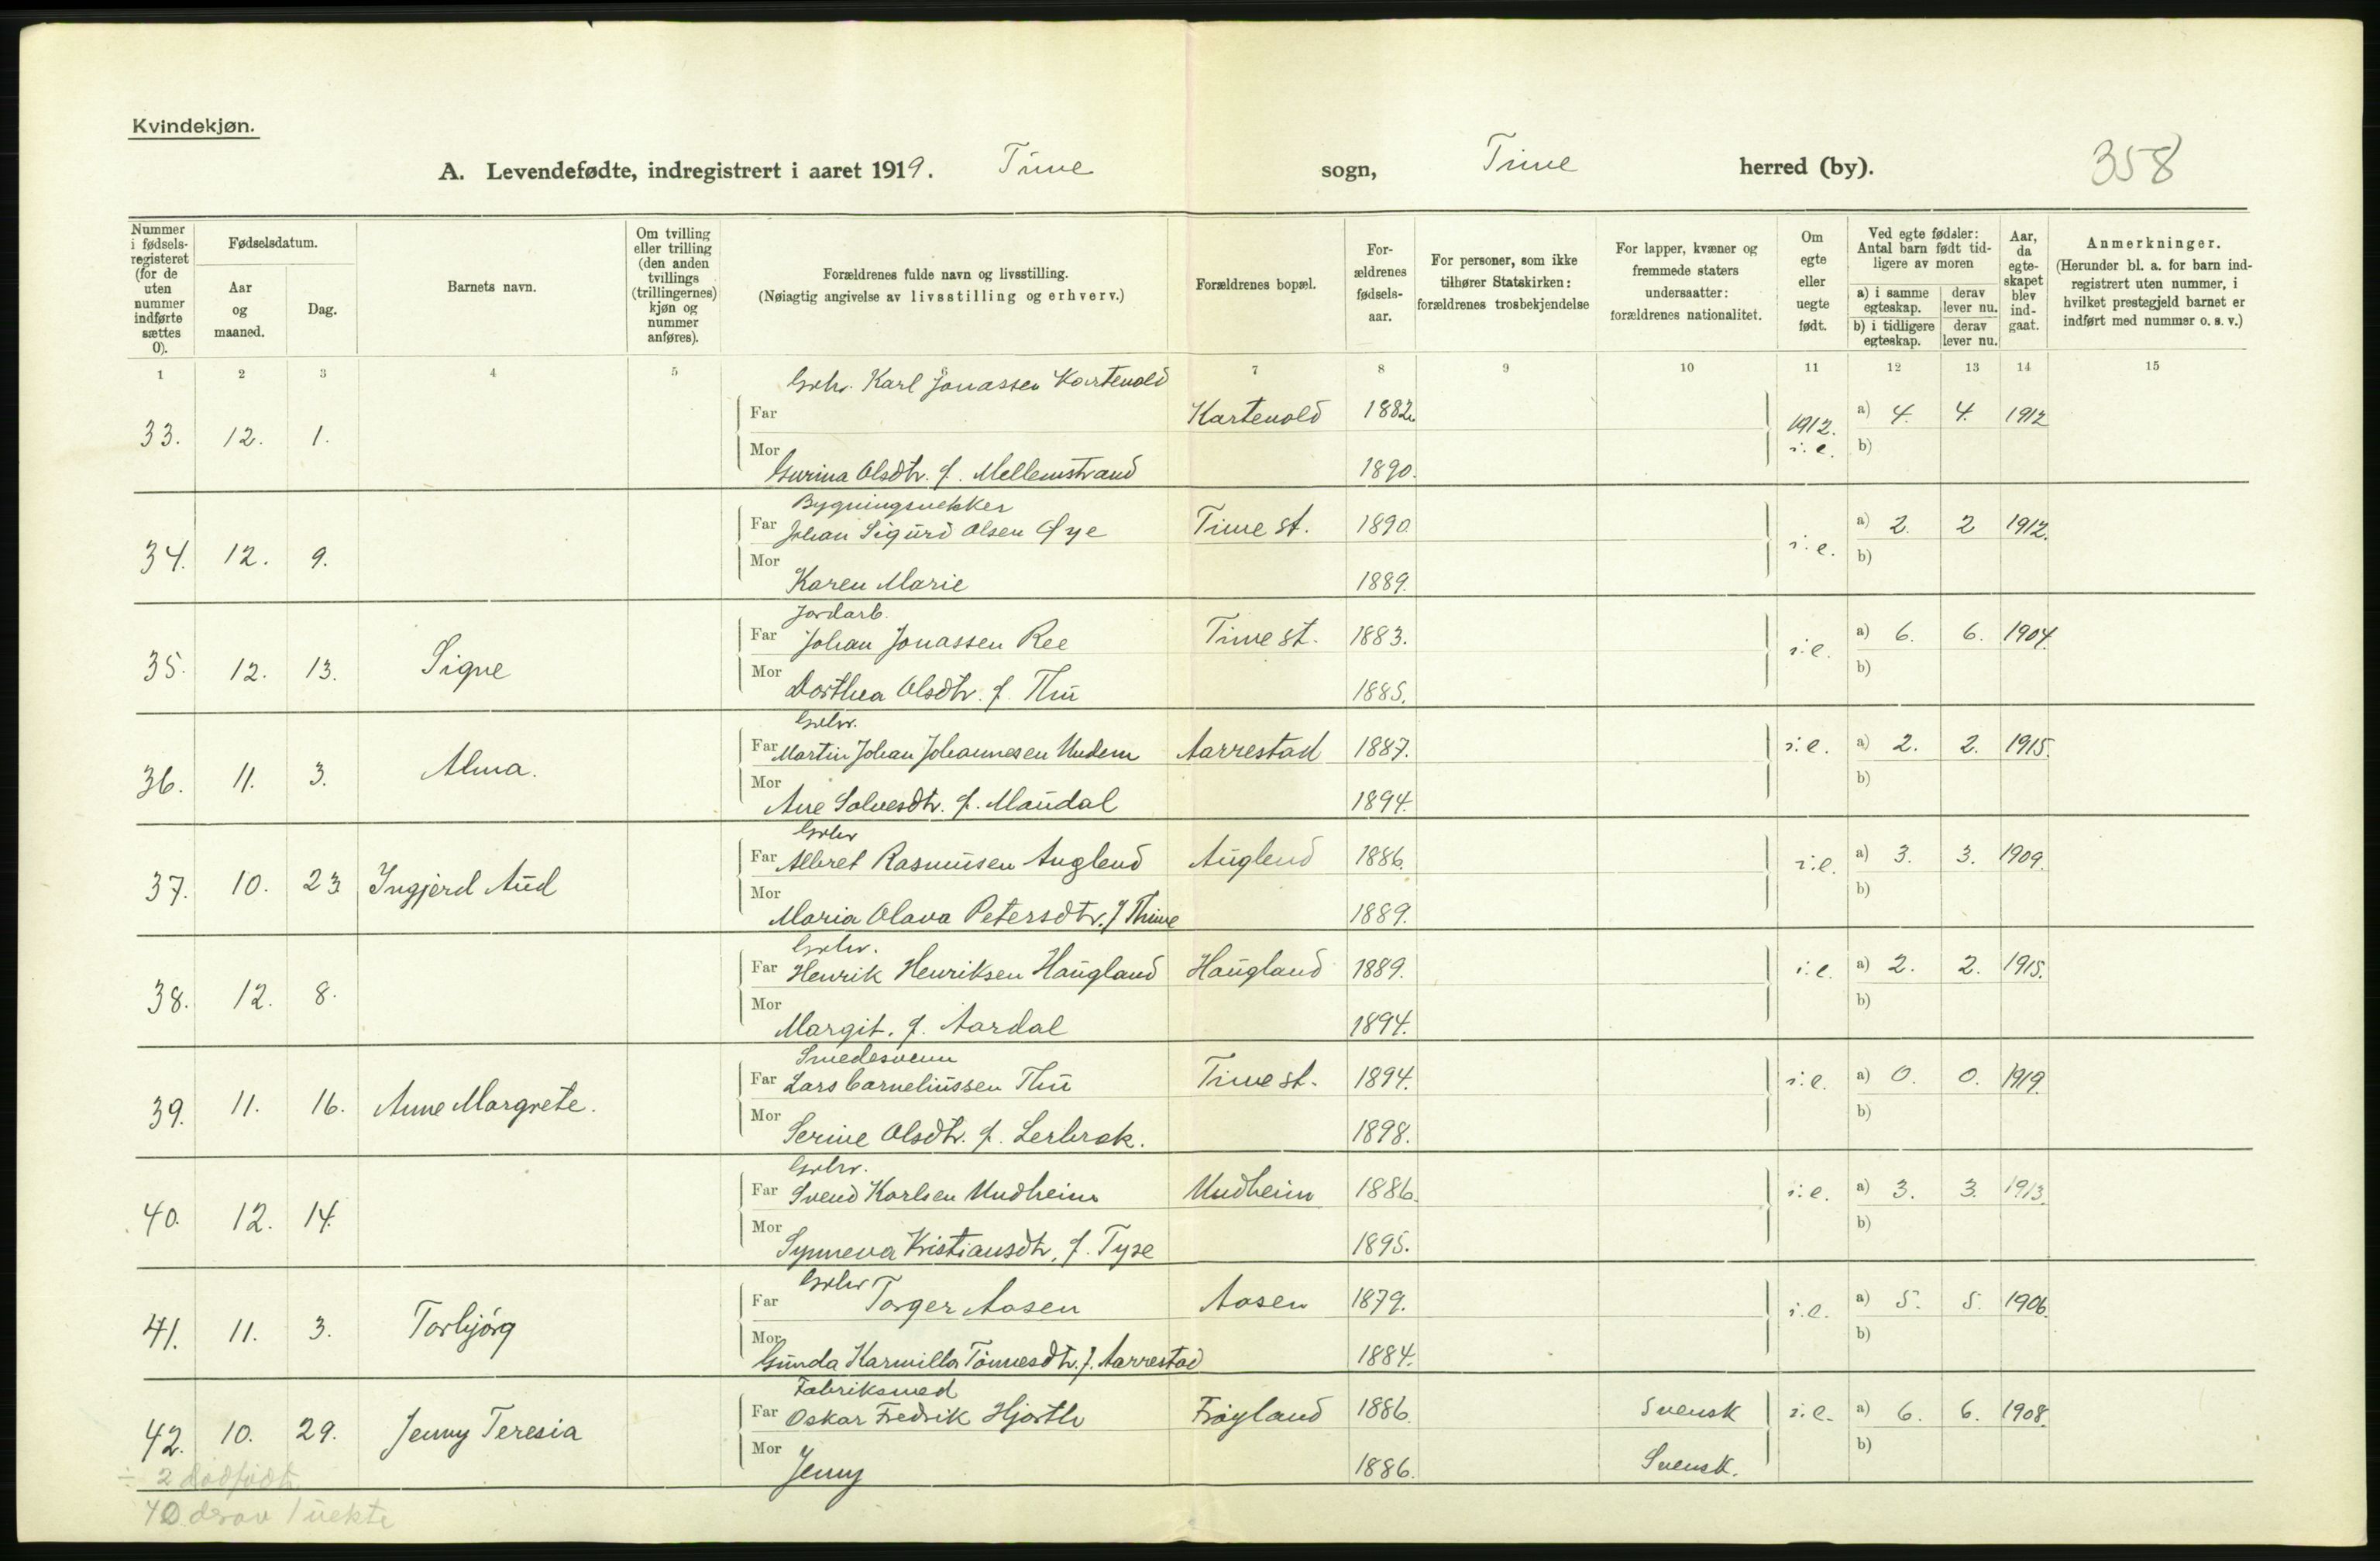 Kvindekjøn.
A. Levendefødte, indregistrert i aaret 1919. Time sogn, Time herred (by). 358
Nummer i fødselsregisteret (for de uten nummer indførte sættes 0).
Fødselsdatum.
Aar og maaned.
Dag.
Barnets navn.
Om tvilling eller trilling (den anden tvillings (trillingernes) kjøn og nummer anføres).
Forældrenes fulde navn og livsstilling.
(Nøiagtig angivelse av livsstilling og erhverv.)
Forældrenes bopæl.
Forældrenes fødselsaar.
For personer, som ikke tilhører Statskirken: forældrenes trosbekjendelse
For lapper, kvæner og fremmede staters undersaatter: forældrenes nationalitet.
Om egte eller uegte født.
Ved egte fødsler: Antal barn født tidligere av moren
a) i samme egteskap. derav lever nu.
b) i tidligere egteskap. derav lever nu.
Aar, da egteskapet blev indgaat.
Anmerkninger.
(Herunder bl. a. for barn indregistrert uten nummer, i hvilket prestegjeld barnet er indført med nummer o. s. v.)
1 2 3 4 5 7 8 9 10 11 12 13 14 15
Grbr. Karl Jonassen Kartevold
33. 12. 1. Far Kartevold 1882. 1912. i.e. a) 4. 4. 1912
Mor Gurina Olsdtr. f. Mellemstrand 1890. b)
Bygningsnekker
34. 12. 9. Far Johan Sigurd Olsen Øye Time st. 1890. i.e. a) 2. 2 1912.
Mor Karen Marie 1889. b)
Jordarb.
35. 12. 13. Signe Far Johan Jonassen Ree Time st. 1883. i.e. a) 6. 6. 1904.
Mor Dorthea Olsdtr. f. Thu 1885. b)
Grbr.
36. 11. 3. Alma. Far Martin Johan Johannesen Undem Aarrestad 1887. i.e. a) 2. 2. 1915.
Mor Ane Solvesdtr. f. Maudal 1894. b)
Grbr
37. 10. 23 Ingjerd Aud Far Albret Rasmusen Auglend Auglend 1886. i.e. a) 3. 3. 1909.
Mor Maria Olava Petersdtr. f Thime 1889. b)
Grbr.
38. 12. 8. Far Henrik Henriksen Haugland Haugland 1889. i.e. a) 2. 2. 1915.
Mor Margit. f. Aardal 1894. b)
Smedesvenn
39. 11. 16. Anne Margrete. Far Lars Corneliussen Thu Time st. 1894. i.e. a) 0. 0. 1919.
Mor Serine Olsdtr. f. Lerbrek. 1898. b)
Grbr.
40. 12. 14. Far Svend Karlsen Undheim Undheim 1886. i.e. a) 3. 3. 1913.
Mor Synneva Kristiansdtr. f. Tyse 1895. b)
Grbr
41. 11. 3. Torbjórg Far Torger Aasen Aasen 1879. i.e. a) 5. 5. 1906.
Mor Gunda Karmilla Tönnesdtr. f. Aarrestad 1884. b)
Fabriksmed
42. 10. 29. Jenny Teresia Far Oskar Fredrik Hjorth Fröyland 1886. Svensk i.e. a) 6. 6. 1908.
Mor Jenny 1886. Svensk. b)
÷ 2 dødfødte
40 derav 1 uekte